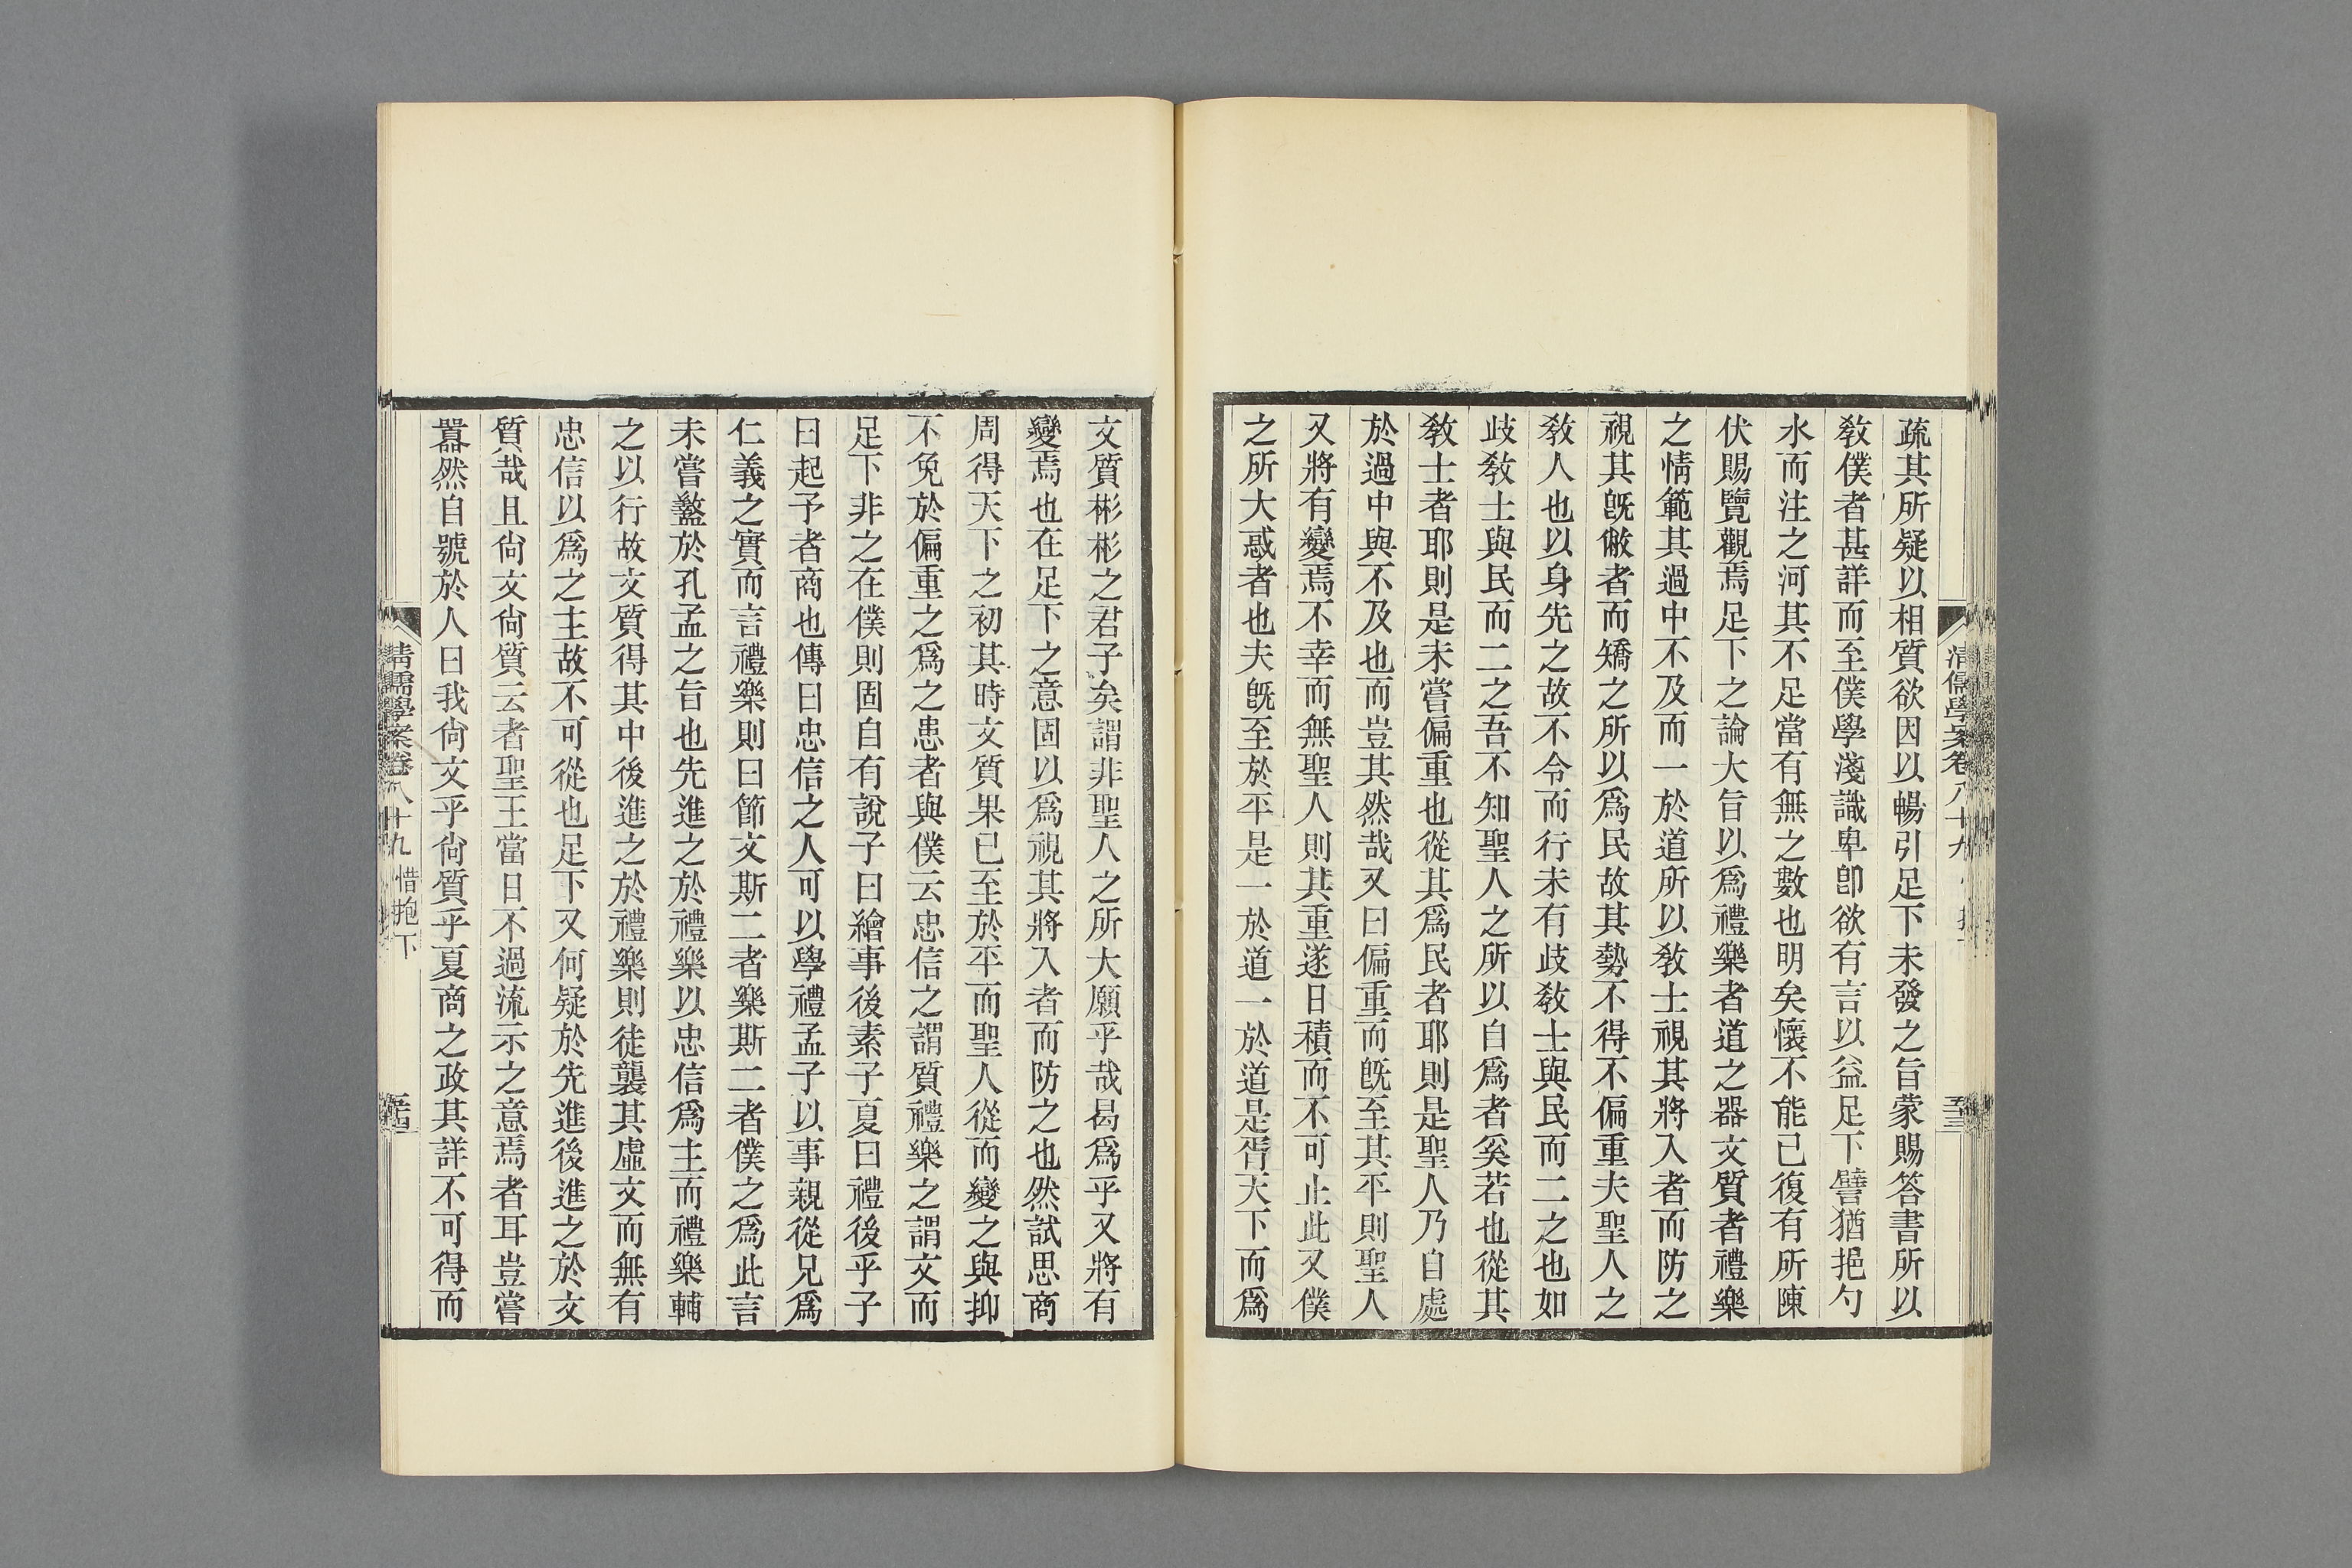 疏其所疑以相質欲因以暢引足下未發之旨蒙賜答書所以
敎僕者甚詳而至僕學淺識卑卽欲有言以益足下譬猶挹勺
水而注之河其不足當有無之數也明矣懷不能已復有所陳
伏賜覽觀焉足下之論大旨以爲禮樂者道之器文質者禮樂
之情範其過中不及而一於道所以敎士視其將入者而防之
視其旣僌者而矯之所以爲民故其勢不得不偏重夫聖人之
敎人也以身先之故不令而行未有歧敎士與民而二之也如
歧敎士與民而二之吾不知聖人之所以自爲者奚若也從其
敎士者耶則是未嘗偏重也從其爲民者耶則是聖人乃自處
於過中與不及也而豈其然哉又曰偏重而旣至其平則聖人
又將有變焉不幸而無聖人則其重遂日積而不可止此又僕
之所大惑者也夫旣至於平是一於道一於道是胥天下而爲
清儒學案卷八十九
文質彬彬之君子矣謂非聖人之所大願乎哉曷爲乎又將有
變焉也在足下之意固以爲視其將入者而防之也然試思商
周得天下之初其時文質果已至於平而聖人從而變之與抑
不免於偏重之爲之患者與僕云忠信之謂質禮樂之謂文而
足下非之在僕則固自有說子曰繪事後素子夏曰禮後乎子
曰起予者商也傳曰忠信之人可以學禮孟子以事親從兄爲
仁義之實而言禮樂則曰節文斯二者樂斯二者僕之爲此言
未嘗盭於孔孟之旨也先進之於禮樂以忠信爲主而禮樂輔
之以行故文質得其中後進之於禮樂則徒襲其虛文而無有
忠信以爲之主故不可從也足下又何疑於先進後進之於文
質哉且尙文尙質云者聖王當日不過流示之意焉者耳豈嘗
囂然自號於人曰我尙文乎尙質乎夏商之政其詳不可得而
清儒學案卷八十九 惜抱下